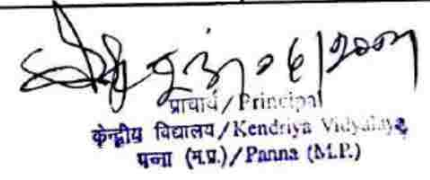 प्राचार्य/Principal
केन्द्रीय विद्यालय/Kendriya Vidyalaya
पन्ना (म.प्र.)/Panna (M.P.)